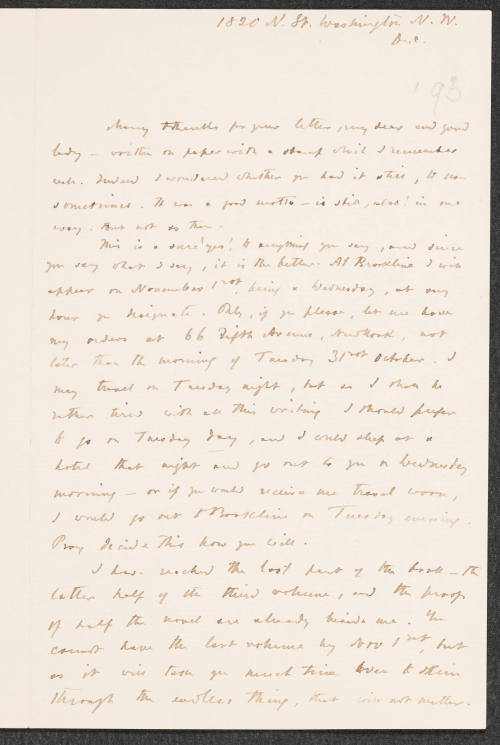 1820 N. St. Washington N. W.
Dec.
193
Many thanks for your letter, my dear and good
lady – written on paper with a stamp which I remember
well. Indeed I wondered whether you had it still, to use
sometimes. It was a good motto – is still, alas! in one
way. But not as then.
This is a sure "yes" to anything you say, and since
you say what I say, it is the better. At Brookline I will
appear on November 1rst, being a Wednesday, at any
hour you designate. Only, if you please, let me have
my orders at 66 Fifth Avenue, New York, not
later than the morning of Tuesday 31rst October. I
may travel on Tuesday night, but as I shall be
rather tired with all this writing I should prefer
to go on Tuesday day, and I could sleep at a
hotel that night and go out to you on Wednesday
morning – or if you would receive me travel worn,
I would go out to Brookline on Tuesday evening.
Pray decide this how you will.
I have reached the last part of the book – the
latter half of the third volume, and the proofs
of half the novel are already beside me. You
cannot have the last volume by Nov 1rst, but
as it will take you much time even to skim
through the endless thing, that will not matter.